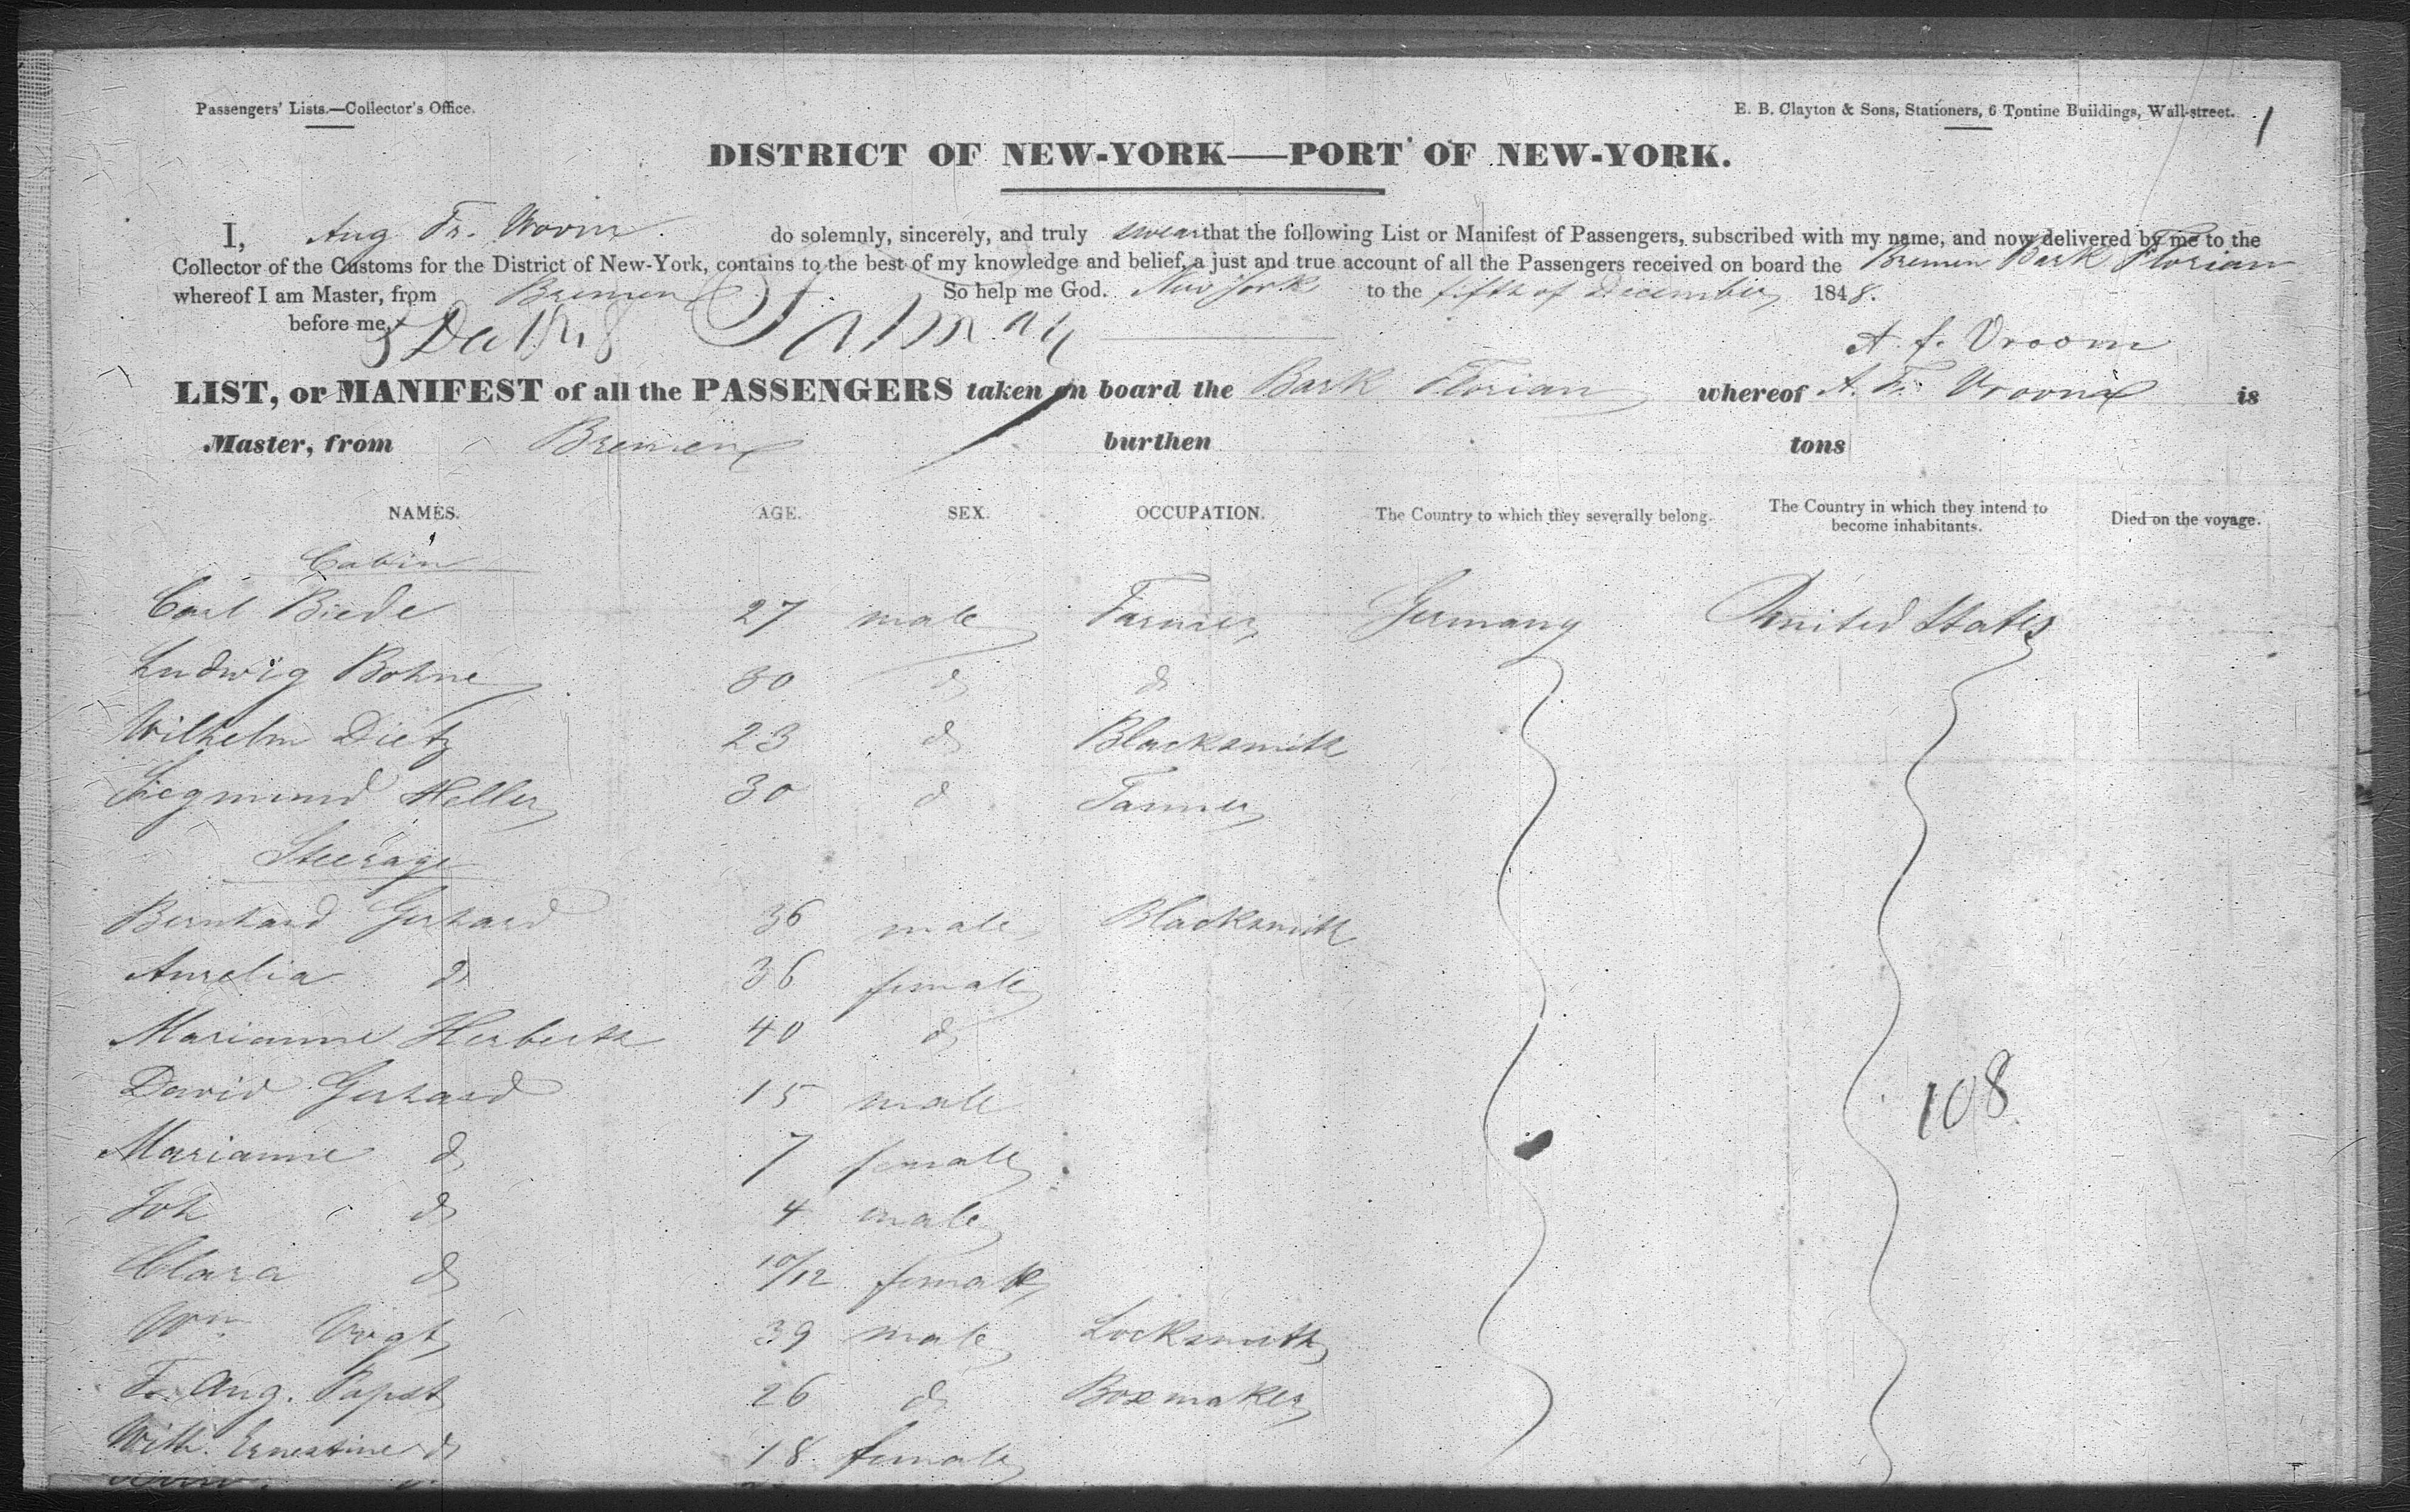 Passengers' Lists.—Collector's Office.
E. B. Clayton & Sons, Stationers, 6 Tontine Buildings, Wall-street.
1
DISTRICT OF NEW-YORK——PORT OF NEW-YORK.
I, Aug Fr. Vroom do solemnly, sincerely, and truly swear that the following List or Manifest of Passengers, subscribed with my name, and now delivered by me to the
Collector of the Customs for the District of New-York, contains to the best of my knowledge and belief, a just and true account of all the Passengers received on board the Bremen Bark Florian
whereof I am Master, from Bremen So help me God. New York to the fifth of December 1848.
before me,
A. f. Vroom
LIST, or MANIFEST of all the PASSENGERS taken on board the Bark Florian whereof A. Fr. Vroom is
Master, from Bremen burthen tons
NAMES. AGE. SEX. OCCUPATION. The Country to which they severally belong. The Country in which they intend to become inhabitants. Died on the voyage.
Cabin
Carl Biede 27 male Farmer Germany United States
Ludwig Bohne 30 do do
Wilhelm Dietz 23 do Blacksmith
Siegmund Heller 30 do Farmer
Steerage
Bernhard Gerhard 36 male Blacksmith
Aurelia do 36 female
Marianne Herberth 40 do
David Gerhard 15 male
Marianne do 7 female
Joh do 4 male
108
Clara do 10/12 female
Wm Vogt 39 male Locksmith
Fr. Aug. Papst 26 do Boxmaker
Wilh. Ernestine do 18 female